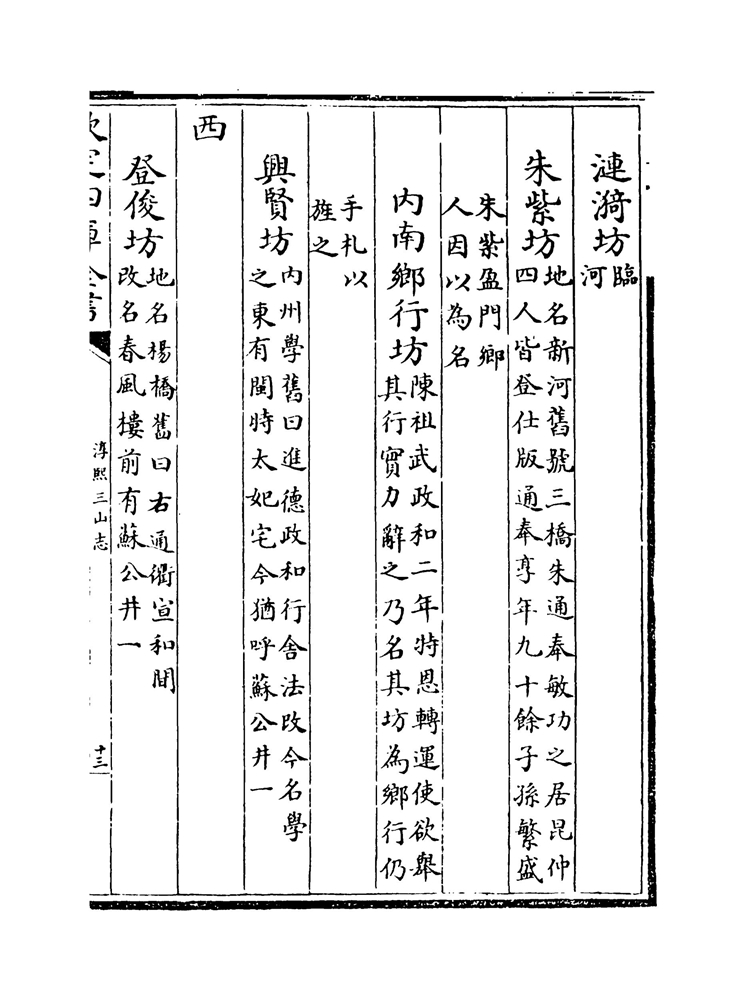 漣漪坊臨
河
朱紫坊地名新河舊號三橋朱通奉敏功之居昆仲
四人皆登仕版通奉享年九十餘子孫繁盛
朱紫盈門鄉
人因以為名
内南鄉行坊陳祖武政和二年特恩轉運使欲舉
其行實力辭之乃名其坊為鄉行仍
手札以
旌之
興賢坊内州學舊曰進德政和行舎法改今名學
之東有閩時太妃宅今猶呼蘇公井一
西
登俊坊地名楊橋舊曰右通衢宣和間
改名春風樓前有蘇公井一
欽定四庫全書
淳熙三山志
十三